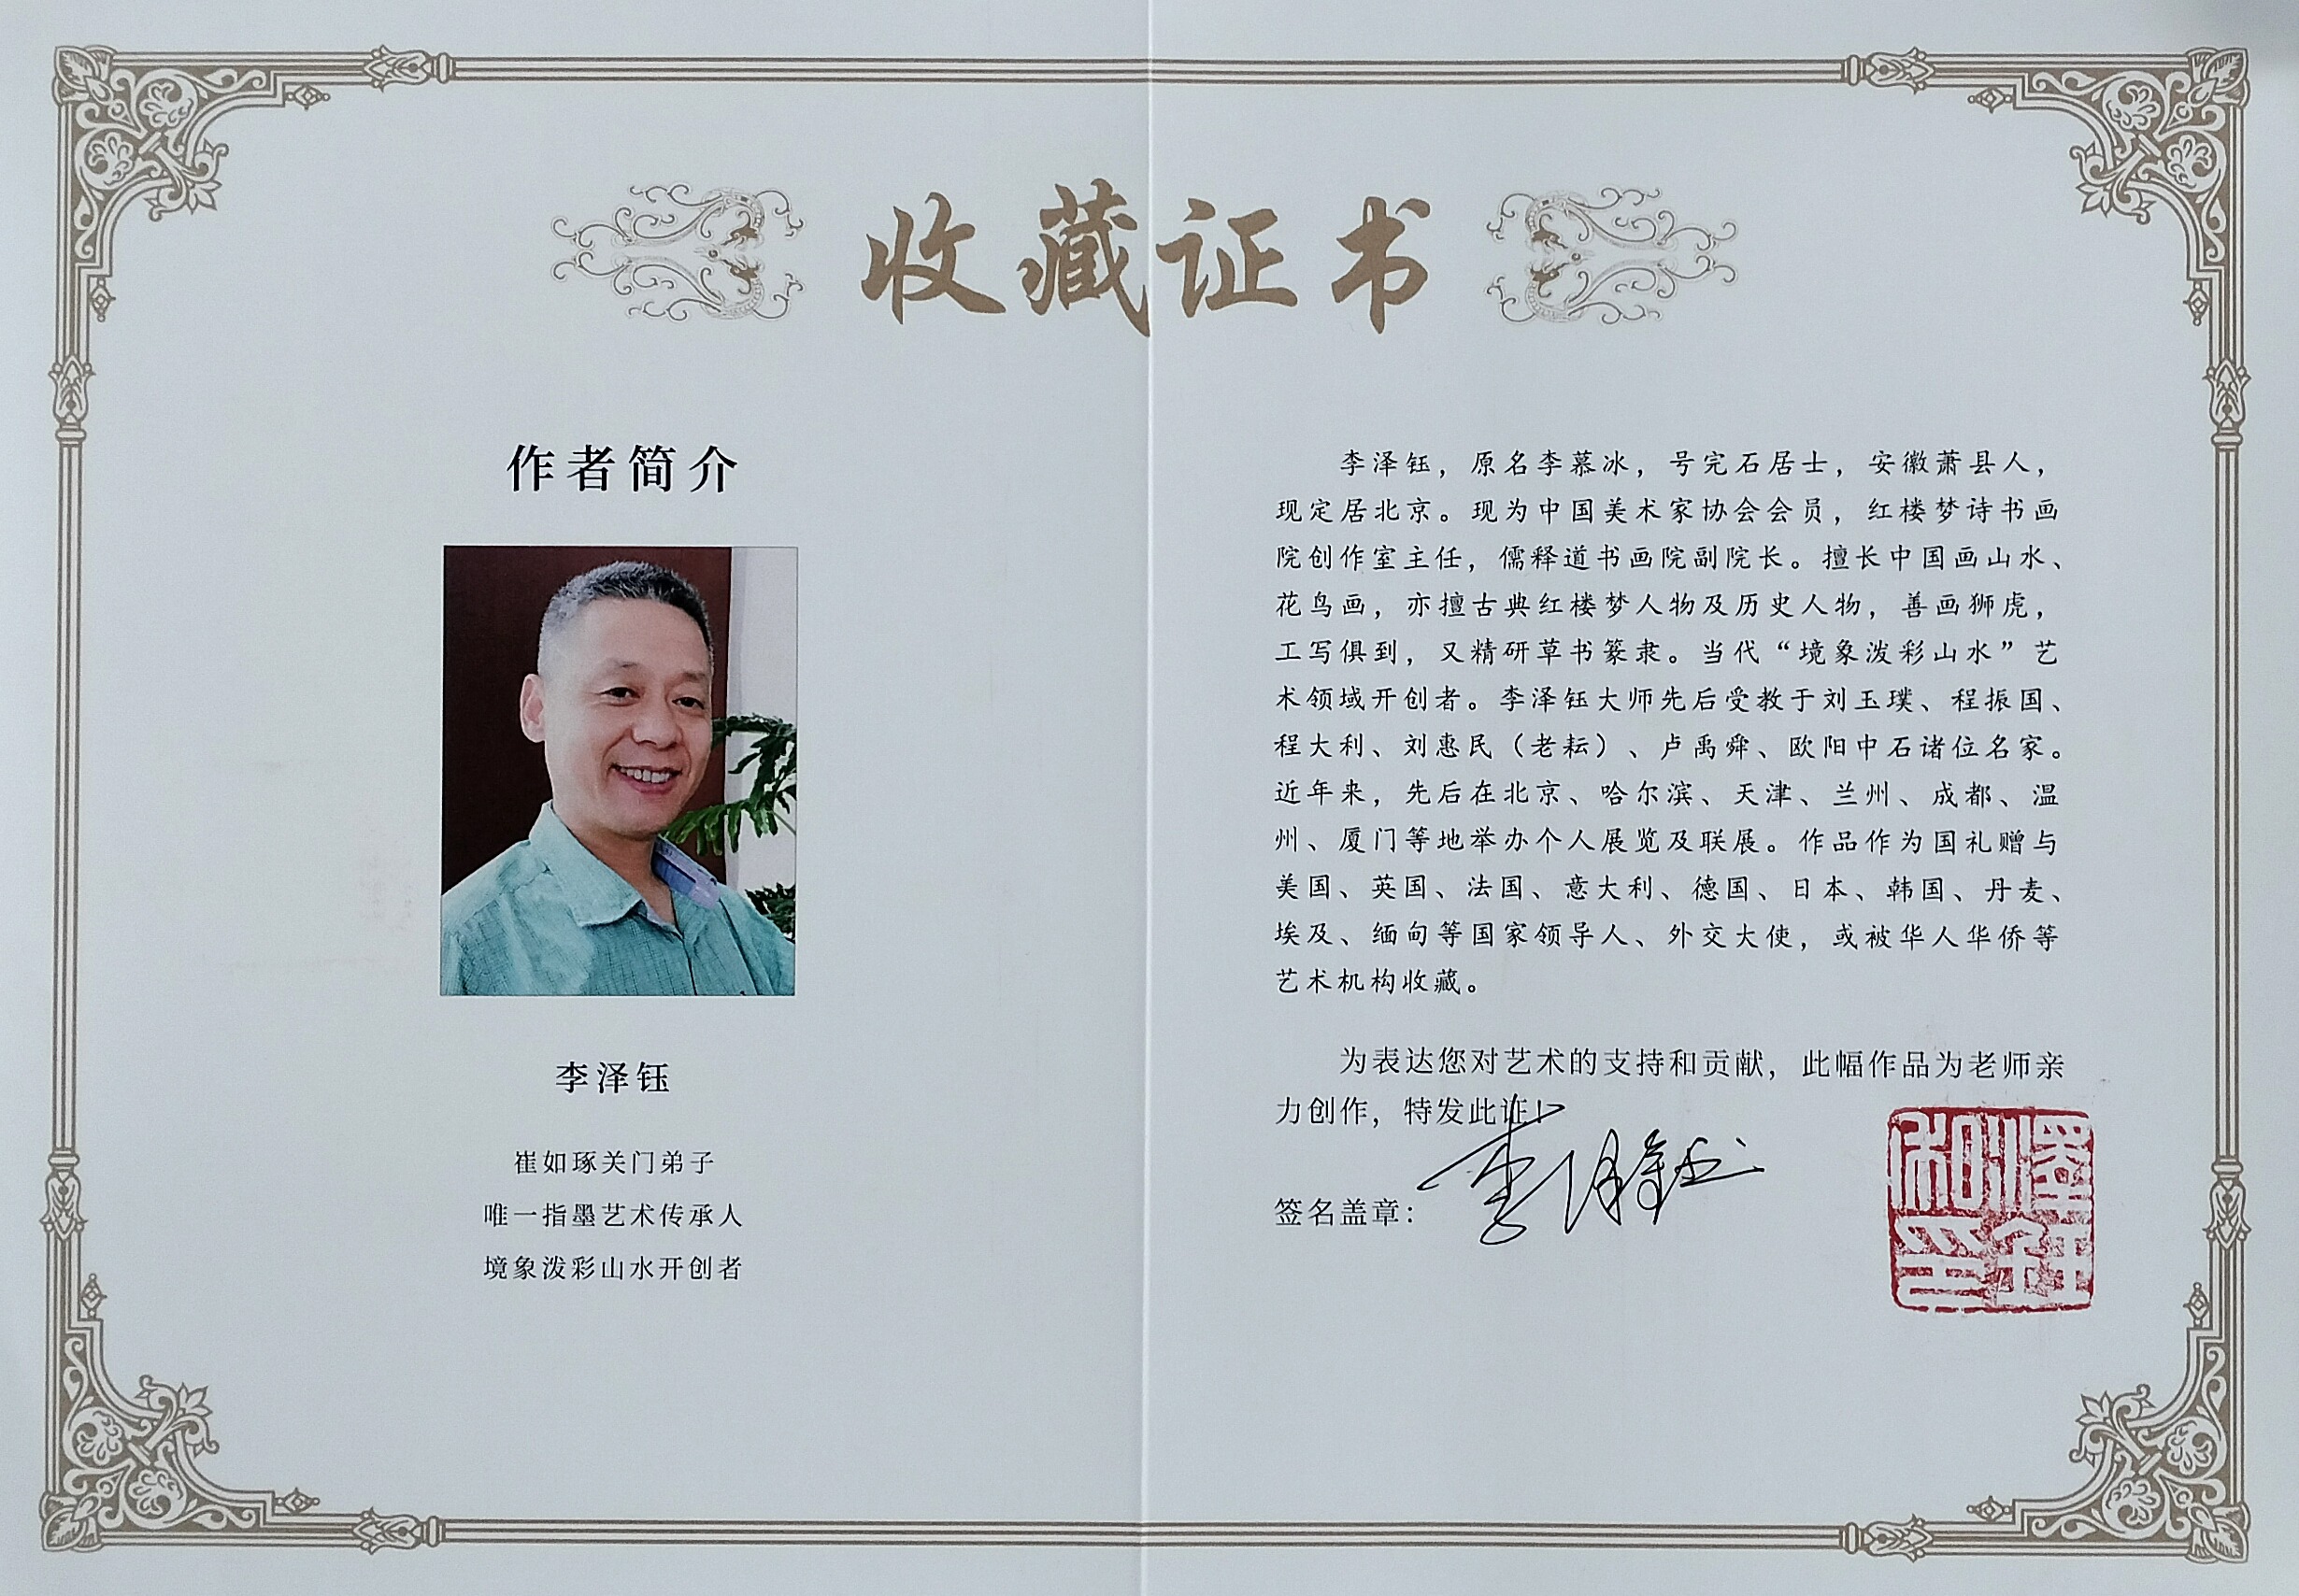 收藏证书
作者简介
李泽钰
崔如琢关门弟子
唯一指墨艺术传承人
境象泼彩山水开创者
李泽钰，原名李慕冰，号完石居士，安徽萧县人，
现定居北京。现为中国美术家协会会员，红楼梦诗书画
院创作室主任，儒释道书画院副院长。擅长中国画山水、
花鸟画，亦擅古典红楼梦人物及历史人物，善画狮虎，
工写俱到，又精研草书篆隶。当代“境象泼彩山水”艺
术领域开创者。李泽钰大师先后受教于刘玉璞、程振国、
程大利、刘惠民（老耘）、卢禹舜、欧阳中石诸位名家。
近年来，先后在北京、哈尔滨、天津、兰州、成都、温
州、厦门等地举办个人展览及联展。作品作为国礼赠与
美国、英国、法国、意大利、德国、日本、韩国、丹麦、
埃及、缅甸等国家领导人、外交大使，或被华人华侨等
艺术机构收藏。
为表达您对艺术的支持和贡献，此幅作品为老师亲
力创作，特发此证！
签名盖章：李泽钰